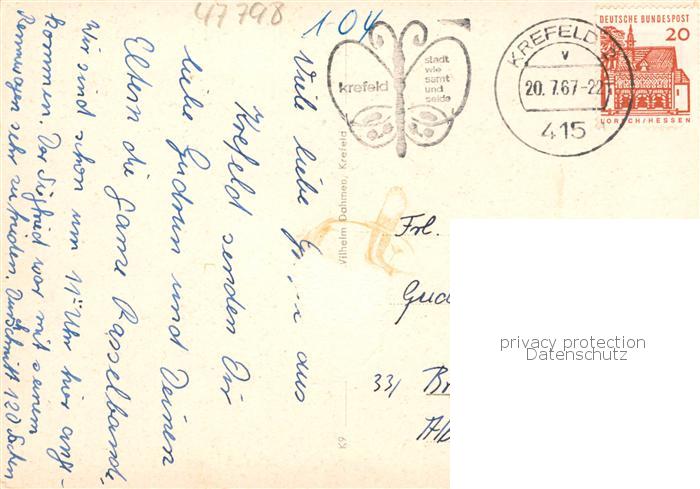 47798
1-04
Viele liebe Grüße aus
Krefeld senden Dir
liebe Gudrun und Deinen
Eltern die ganze Rasselbande.
Wir sind schon um 11 Uhr hier ange-
kommen. Der Siegfried war mit seinem
Rennwagen sehr zufrieden. Durchschnitt 120 Sachen
krefeld
stadt
wie
samt
und
seide
KREFELD
v
20.7.67-22
415
DEUTSCHE BUNDESPOST
20
LORSCH/HESSEN
Wilhelm Dahmen, Krefeld
K9
Frl.
Gud
33/ Br
privacy protection
Datenschutz